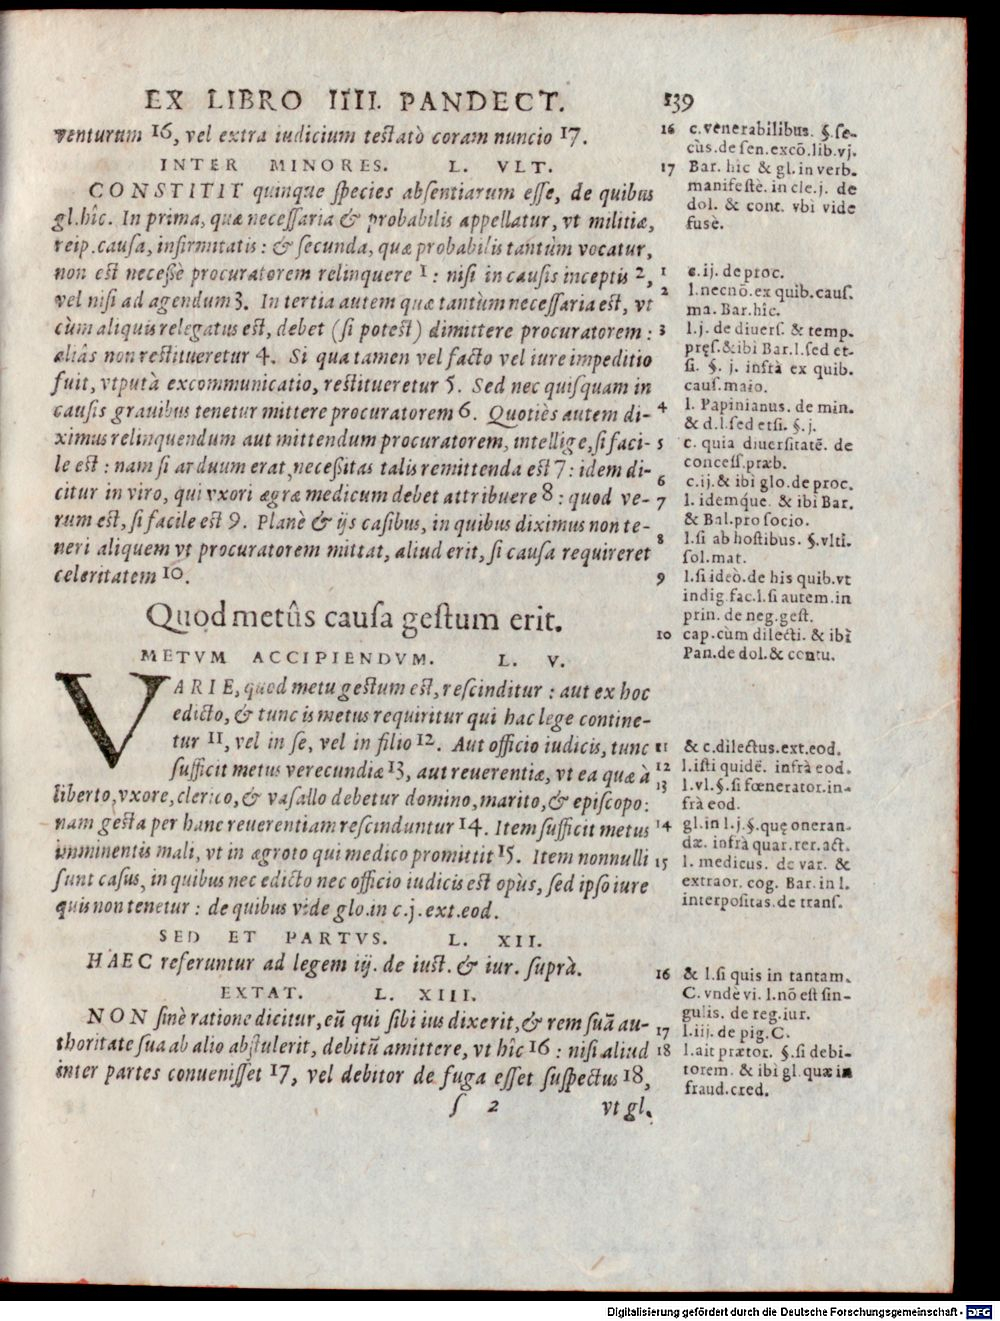 EX LIBRO IIII. PANDECT. 139
venturum 16, vel extra iudicium testatò coram nuncio 17.
INTER MINORES. L. VLT.
CONSTITIT quinque species absentiarum esse, de quibus
gl.hîc. In prima, quæ necessaria & probabilis appellatur, vt militiæ,
reip.causa, infirmitatis: & secunda, quæ probabilis tantùm vocatur,
non est necesse procuratorem relinquere 1: nisi in causis inceptis 2,
vel nisi ad agendum 3. In tertia autem quæ tantùm necessaria est, vt
cùm aliquis relegatus est, debet (si potest) dimittere procuratorem:
aliâs non restitueretur 4. Si qua tamen vel facto vel iure impeditio
fuit, vtputà excommunicatio, restitueretur 5. Sed nec quisquam in
causis grauibus tenetur mittere procuratorem 6. Quotiès autem di-
ximus relinquendum aut mittendum procuratorem, intellige, si faci-
le est: nam si arduum erat, necessitas talis remittenda est 7: idem di-
citur in viro, qui vxori ægræ medicum debet attribuere 8: quod ve-
rum est, si facile est 9. Planè & ijs casibus, in quibus diximus non te-
neri aliquem vt procuratorem mittat, aliud erit, si causa requireret
celeritatem 10.
Quod metûs causa gestum erit.
METVM ACCIPIENDVM. L. V.
VARIE, quod metu gestum est, rescinditur: aut ex hoc
edicto, & tunc is metus requiritur qui hac lege contine-
tur 11, vel in se, vel in filio 12. Aut officio iudicis, tunc
sufficit metus verecundiæ 13, aut reuerentiæ, vt ea quæ à
liberto, vxore, clerico, & vasallo debetur domino, marito, & episcopo:
nam gesta per hanc reuerentiam rescinduntur 14. Item sufficit metus
imminentis mali, vt in ægroto qui medico promittit 15. Item nonnulli
sunt casus, in quibus nec edicto nec officio iudicis est opùs, sed ipso iure
quis non tenetur: de quibus vide glo.in c.j.ext.eod.
SED ET PARTVS. L. XII.
HAEC referuntur ad legem iij. de iust. & iur. suprà.
EXTAT. L. XIII.
NON sinè ratione dicitur, eũ qui sibi ius dixerit, & rem suã au-
thoritate sua ab alio abstulerit, debitũ amittere, vt hîc 16: nisi aliud
inter partes conuenisset 17, vel debitor de fuga esset suspectus 18,
s 2 vt gl.
16 c.venerabilibus. §.se-
cùs.de sen.excõ.lib.vj.
17 Bar. hîc & gl.in verb.
manifestè. in cle.j. de
dol. & cont. vbi vide
fusè.
1 c.ij. de proc.
2 l.necnõ.ex quib.caus.
ma. Bar.hîc.
3 l.j. de diuers. & temp.
pręs.&ibi Bar.l.sed et-
si. §. j. infrà ex quib.
caus.maio.
4 l. Papinianus. de min.
& d.l.sed etsi. §.j.
5 c. quia diuersitatē. de
concess.præb.
6 c.ij.& ibi glo.de proc.
7 l. idemq́ue. & ibi Bar.
& Bal.pro socio.
8 l.si ab hostibus. §.vlti.
sol.mat.
9 l.si ideò.de his quib.vt
indig.fac.l.si autem.in
prin. de neg.gest.
10 cap.cùm dilecti. & ibì
Pan.de dol.& contu.
11 & c.dilectus.ext.eod.
12 l.isti quidē. infrà eod.
13 l.vl.§.si fœnerator.in-
frà eod.
14 gl.in l.j.§.quę oneran-
dæ. infrà quar.rer.act.
15 l. medicus. de var. &
extraor. cog. Bar. in l.
interpositas.de trans.
16 & l.si quis in tantam.
C. vndè vi. l.nõ est sin-
gulis. de reg.iur.
17 l.iij. de pig.C.
18 l.ait prætor. §.si debi-
torem. & ibi gl.quæ in
fraud.cred.
Digitalisierung gefördert durch die Deutsche Forschungsgemeinschaft - DFG